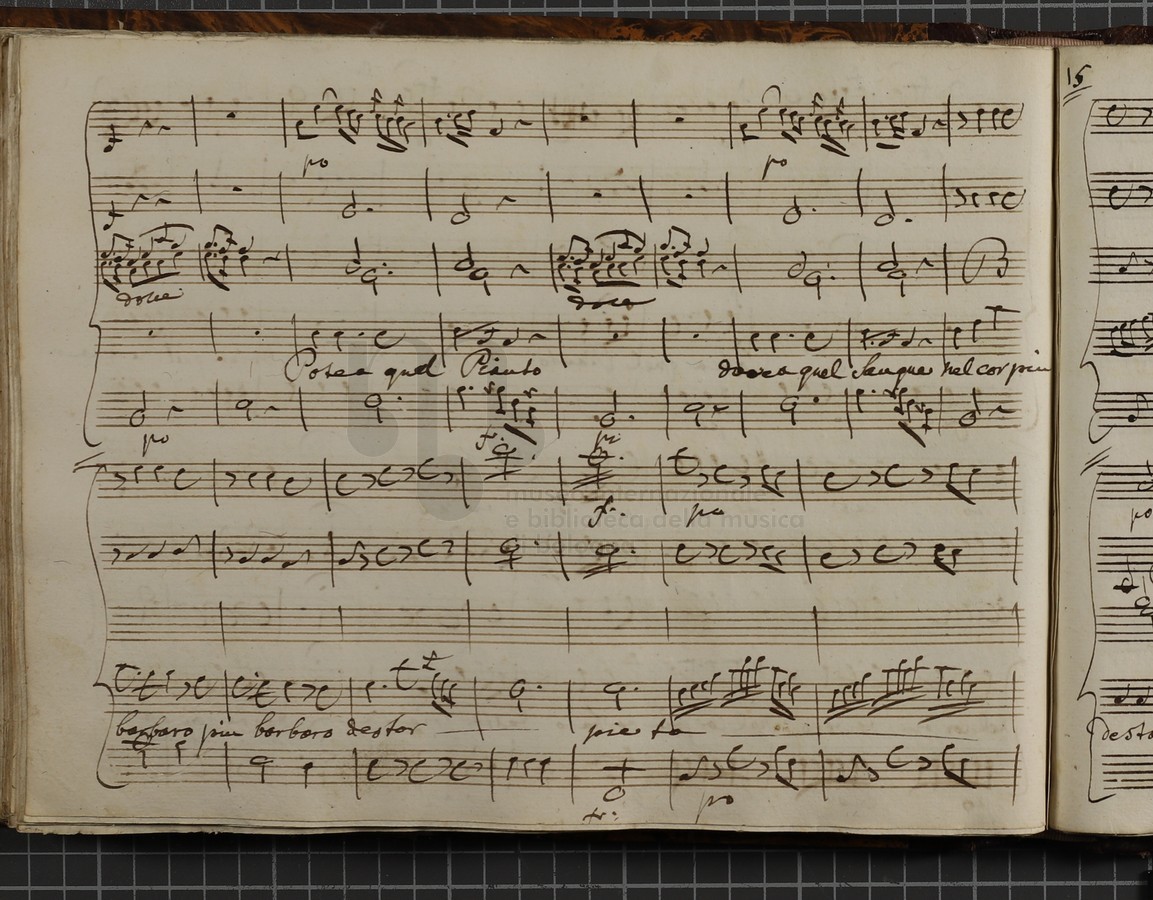 15
po
po
dolce
dolce
Potea quel Pianto
dovea quel Sangue nel cor piu
po
f.
museo internazionale
e biblioteca della musica
f.
po
po
barbaro piu barbaro destar
pieta
desta
po